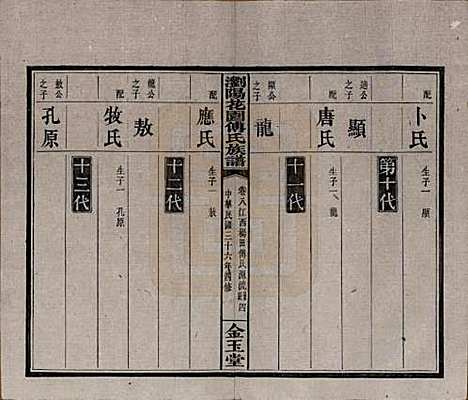 卜氏
配
生子一 顯
第十代
顯
迪公之子
唐氏
配
生子一 龍
十一代
龍
顯公之子
瀏陽花園傅氏族譜
卷八江西楊田傅氏源流
四
中華民國三十六年四修
金玉堂
應氏
配
生子一 敖
十二代
敖
龍公之子
牧氏
配
生子一 孔原
十三代
孔原
敖公之子